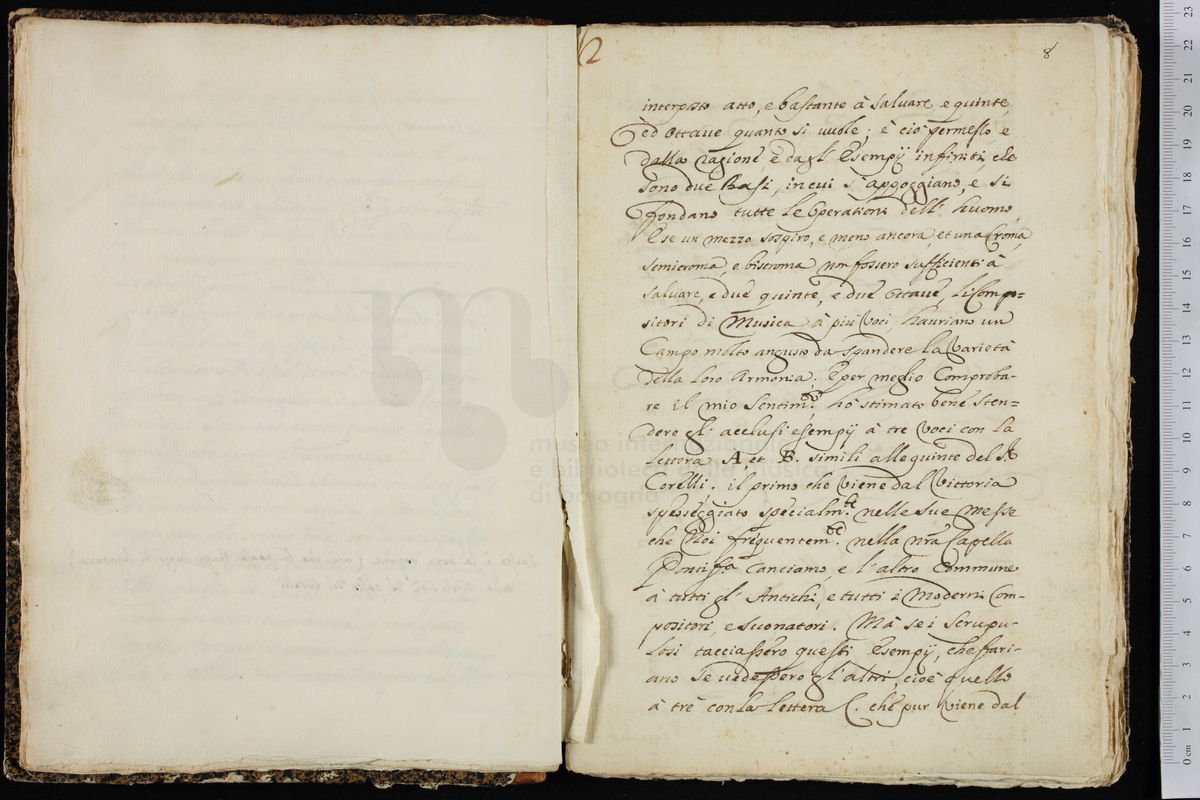 2
8
interposto atto, e bastante à salvare e quinte
ed ottave quanto si vuole; è ciò permesso e
dalla ragione e dagl' Esempij infiniti, che
sono due Basi, in cui s'appoggiano, e si
fondano tutte le Operationi dell' huomo.
E se un mezzo sospiro, e meno ancora, et una Croma,
semicroma, e biscroma non fossero sufficienti à
salvare, e due quinte, e due ottave, li Compo=
sitori di Musica à più Voci, hauriano un
Campo molto angusto da spandere la Varietà
della loro Armonia. E per meglio Comproba-
re il mio Sentim.to hò stimato bene sten=
dere gl' acclusi esempij à tre voci con la
lettera A, et B. simili alle quinte del S.r
Corelli. il primo che viene dal Victoria
spesseggiato specialm.te nelle sue Messe
che Noi frequentem.te nella nra Capella
Pontif.a Cantiamo, e l'altro Commune
à tutti gl' Antichi, e tutti i Moderni Com-
positori, e suonatori. Mà se i scrupu-
losi tacciassero questi Esempij, che fari-
ano se vedessero gl'altri cioè quello
à trè con la lettera C. che pur viene dal
museo internazionale
e biblioteca della musica
di bologna
0 cm 1 2 3 4 5 6 7 8 9 10 11 12 13 14 15 16 17 18 19 20 21 22 23